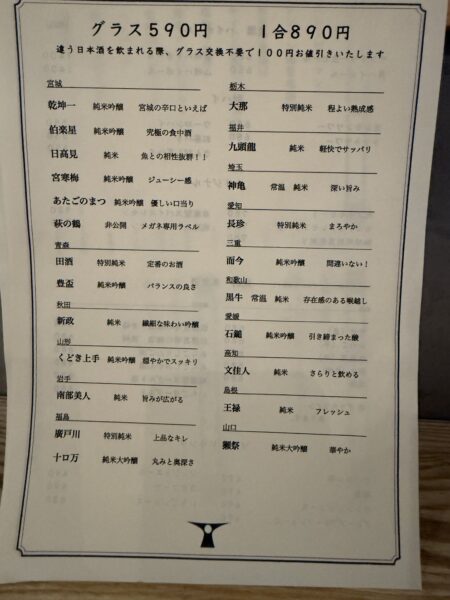 グラス590円　1合890円
違う日本酒を飲まれる際、グラス交換不要で100円お値引きいたします
宮城
乾坤一　純米吟醸　宮城の辛口といえば
伯楽星　純米吟醸　究極の食中酒
日高見　純米　魚との相性抜群！！
宮寒梅　純米吟醸　ジューシー感
あたごのまつ　純米吟醸　優しい口当り
萩の鶴　非公開　メガネ専用ラベル
青森
田酒　特別純米　定番のお酒
豊盃　純米吟醸　バランスの良さ
秋田
新政　純米　繊細な味わい吟醸
山形
くどき上手　純米吟醸　穏やかでスッキリ
岩手
南部美人　純米　旨みが広がる
福島
廣戸川　特別純米　上品なキレ
十ロ万　純米大吟醸　丸みと奥深さ
栃木
大那　特別純米　程よい熟成感
福井
九頭龍　純米　軽快でサッパリ
埼玉
神亀　常温　純米　深い旨み
愛知
長珍　特別純米　まろやか
三重
而今　純米吟醸　間違いない！
和歌山
黒牛　常温　純米　存在感のある喉越し
愛媛
石鎚　純米吟醸　引き締まった酸
高知
文佳人　純米　さらりと飲める
島根
王祿　純米　フレッシュ
山口
獺祭　純米大吟醸　華やか